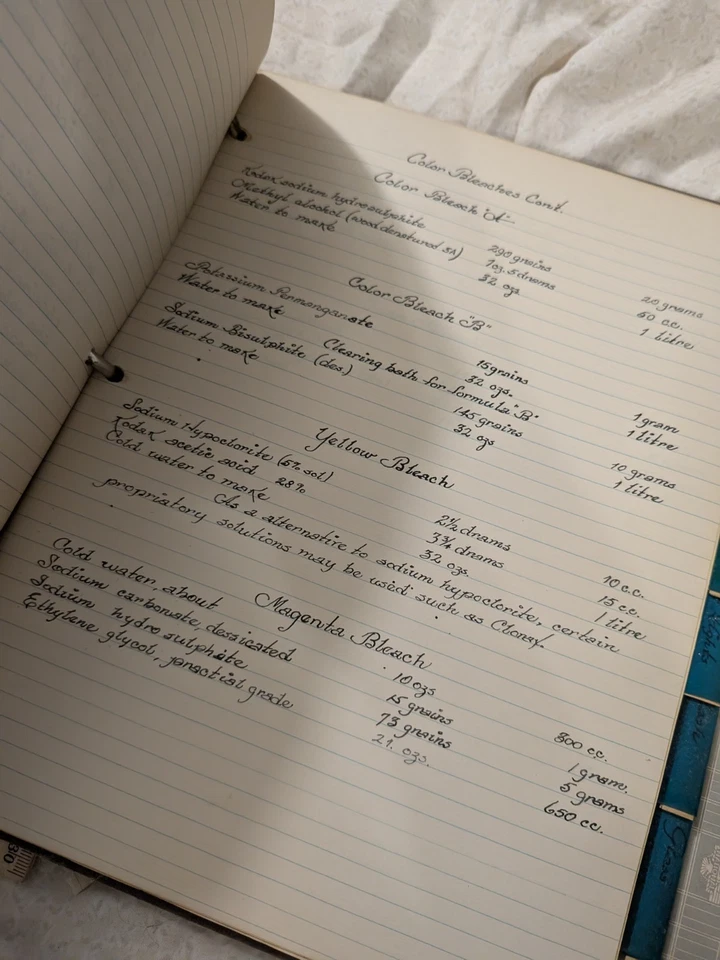 Color Bleaches Cont.
Color Bleach "A"
Kodak sodium hydrosulphite 290 grains 20 grams
Methyl alcohol (wood denatured SA) 1 oz. 5 drams 50 cc.
Water to make 32 ozs 1 litre
Color Bleach "B"
Potassium Permanganate 15 grains 1 gram
Water to make 32 ozs. 1 litre
Clearing bath for formula "B"
Sodium Bisulphite (des.) 145 grains 10 grams
Water to make 32 ozs 1 litre
Yellow Bleach
Sodium Hypoclorite (5% sol) 2½ drams 10 c.c.
Kodak acetic acid 28% 3¾ drams 15 cc.
Cold water to make 32 ozs. 1 litre
As a alternative to sodium hypoclorite, certain
propriatory solutions may be used such as Clorax.
Magenta Bleach
Cold water, about 10 ozs 300 cc.
Sodium carbonate, dessicated 15 grains 1 gram.
Sodium hydrosulphite 73 grains 5 grams
Ethylene glycol, practial grade 21. ozs. 650 cc.
30